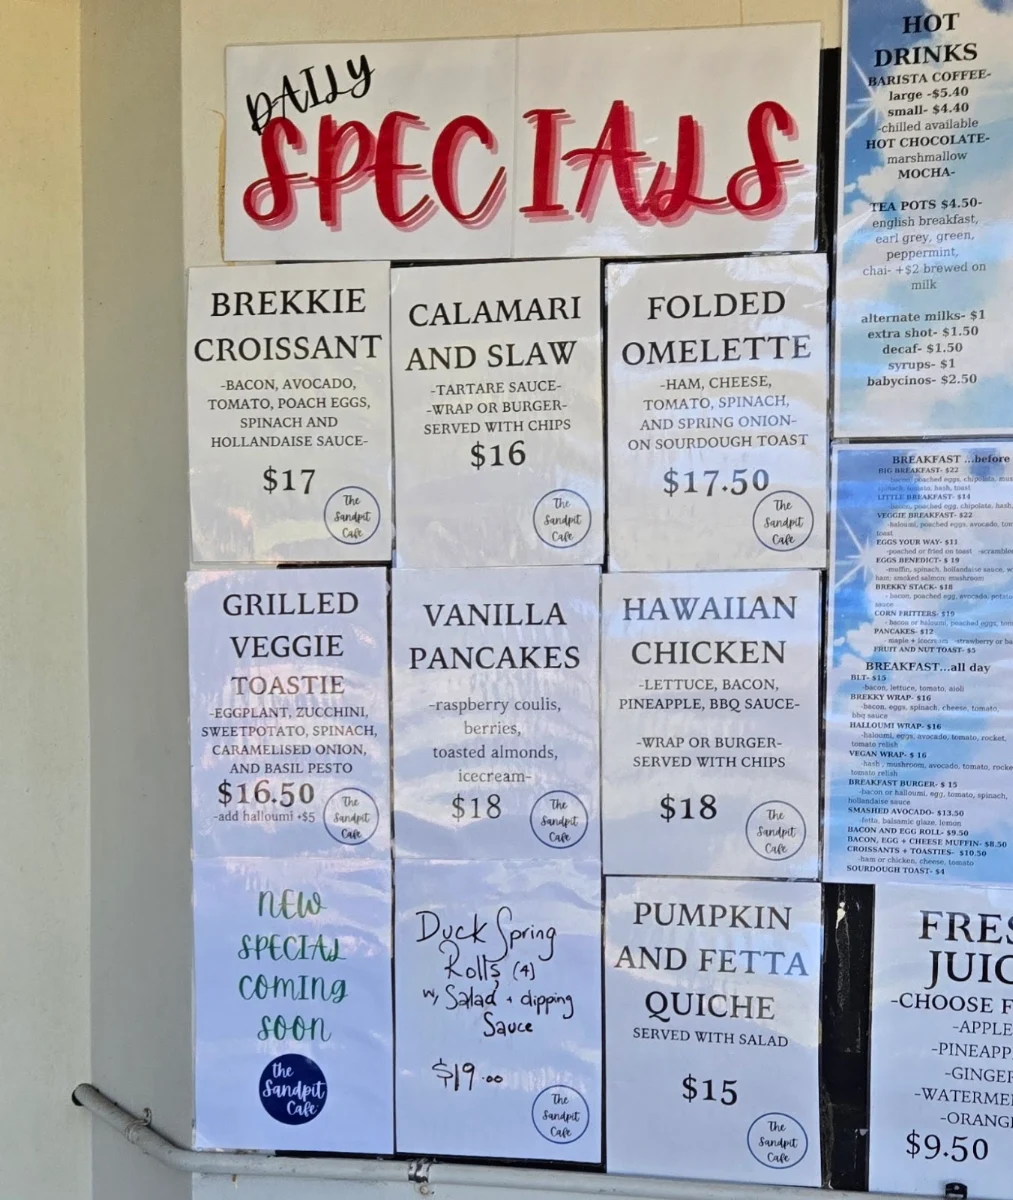 DAILY
SPECIALS
BREKKIE
CROISSANT
-BACON, AVOCADO,
TOMATO, POACH EGGS,
SPINACH AND
HOLLANDAISE SAUCE-
$17
The
Sandpit
Cafe
CALAMARI
AND SLAW
-TARTARE SAUCE-
-WRAP OR BURGER-
SERVED WITH CHIPS
$16
The
Sandpit
Cafe
FOLDED
OMELETTE
-HAM, CHEESE,
TOMATO, SPINACH,
AND SPRING ONION-
ON SOURDOUGH TOAST
$17.50
The
Sandpit
Cafe
GRILLED
VEGGIE
TOASTIE
-EGGPLANT, ZUCCHINI,
SWEETPOTATO, SPINACH,
CARAMELISED ONION,
AND BASIL PESTO
$16.50
-add halloumi +$5
The
Sandpit
Cafe
VANILLA
PANCAKES
-raspberry coulis,
berries,
toasted almonds,
icecream-
$18
The
Sandpit
Cafe
HAWAIIAN
CHICKEN
-LETTUCE, BACON,
PINEAPPLE, BBQ SAUCE-
-WRAP OR BURGER-
SERVED WITH CHIPS
$18
The
Sandpit
Cafe
NEW
SPECIAL
COMING
SOON
the
Sandpit
Cafe
Duck Spring
Rolls (4)
w, Salad + dipping
Sauce
$19.00
The
Sandpit
Cafe
PUMPKIN
AND FETTA
QUICHE
SERVED WITH SALAD
$15
The
Sandpit
Cafe
HOT
DRINKS
BARISTA COFFEE-
large -$5.40
small- $4.40
-chilled available
HOT CHOCOLATE-
marshmallow
MOCHA-
TEA POTS $4.50-
english breakfast,
earl grey, green,
peppermint,
chai- +$2 brewed on
milk
alternate milks- $1
extra shot- $1.50
decaf- $1.50
syrups- $1
babycinos- $2.50
BREAKFAST ...before
BIG BREAKFAST- $22
-bacon, poached eggs, chipolata,
spinach, tomato, hash, toast
LITTLE BREAKFAST- $14
-bacon, poached egg, chipolata, hash,
VEGGIE BREAKFAST- $22
-haloumi, poached eggs, avocado,
toast
EGGS YOUR WAY- $11
-poached or fried on toast
EGGS BENEDICT- $ 19
-muffin, spinach, hollandaise sauce,
ham, smoked salmon, mushroom
BREKKY STACK- $18
- bacon, poached egg, avocado,
sauce
CORN FRITTERS- $19
- bacon or haloumi, poached eggs,
PANCAKES- $12
- maple + icecream -strawberry or
FRUIT AND NUT TOAST- $5
BREAKFAST...all day
BLT- $15
-bacon, lettuce, tomato, aioli
BREKKY WRAP- $16
-bacon, eggs, spinach, cheese, tomato,
bbq sauce
HALLOUMI WRAP- $16
-haloumi, eggs, avocado, tomato, rocket,
tomato relish
VEGAN WRAP- $ 16
-hash , mushroom, avocado, tomato,
tomato relish
BREAKFAST BURGER- $ 15
-bacon or halloumi, egg, tomato, spinach,
hollandaise sauce
SMASHED AVOCADO- $13.50
-fetta, balsamic glaze, lemon
BACON AND EGG ROLL- $9.50
BACON, EGG + CHEESE MUFFIN- $8.50
CROISSANTS + TOASTIES- $10.50
-ham or chicken, cheese, tomato
SOURDOUGH TOAST- $4
FRES
JUIC
-CHOOSE F
-APPLE
-PINEAPP
-GINGER
-WATERME
-ORANG
$9.50